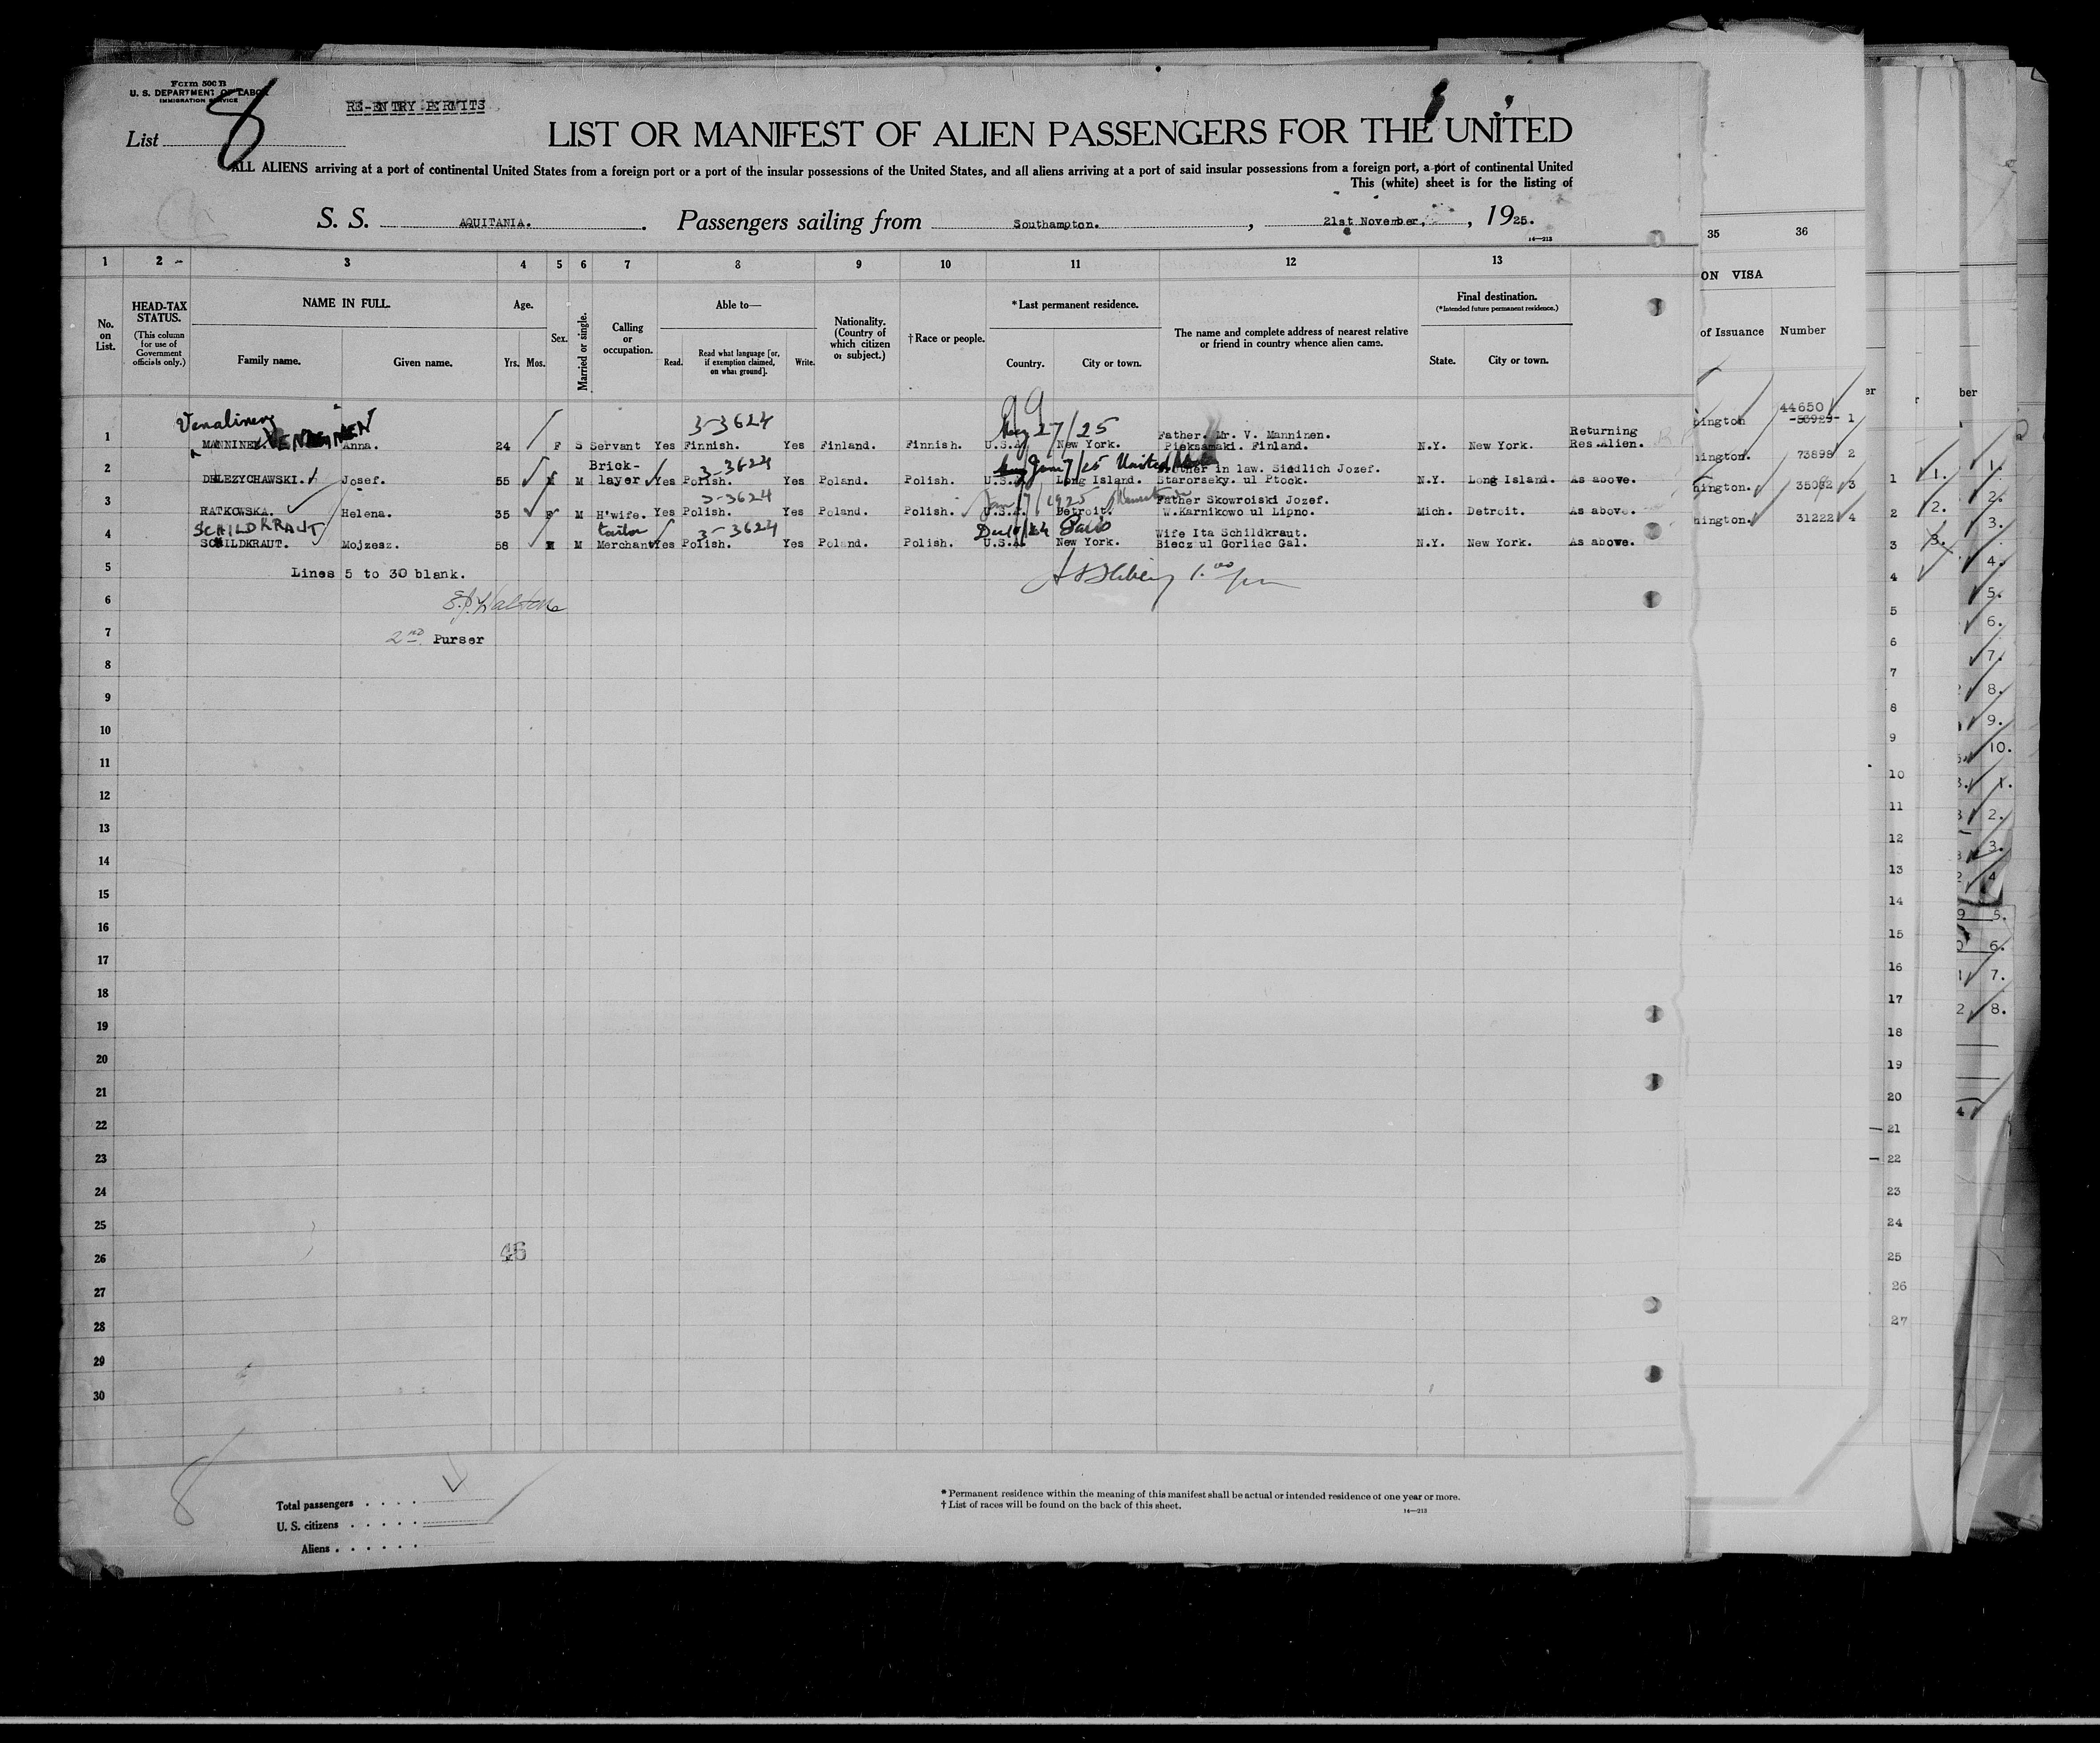 Form 500 B
U. S. DEPARTMENT OF LABOR
IMMIGRATION SERVICE
RE-ENTRY PERMITS
List 8
LIST OR MANIFEST OF ALIEN PASSENGERS FOR THE UNITED
ALL ALIENS arriving at a port of continental United States from a foreign port or a port of the insular possessions of the United States, and all aliens arriving at a port of said insular possessions from a foreign port, a port of continental United
This (white) sheet is for the listing of
S. S. AQUITANIA. Passengers sailing from Southampton. , 21st November, , 1925.
14—213
1 2 3 4 5 6 7 8 9 10 11 12 13 35 36
ON VISA
No. on List.
HEAD-TAX STATUS.
(This column for use of Government officials only.)
NAME IN FULL.
Family name. Given name.
Age.
Yrs. Mos.
Sex.
Married or single.
Calling or occupation.
Able to—
Read. Read what language [or, if exemption claimed, on what ground]. Write.
Nationality. (Country of which citizen or subject.)
†Race or people.
*Last permanent residence.
Country. City or town.
The name and complete address of nearest relative or friend in country whence alien came.
Final destination.
(*Intended future permanent residence.)
State. City or town.
of Issuance Number
3-3624 27/25 44650
1 MANNINEN. Anna. 24 F S Servant Yes Finnish. Yes Finland. Finnish. U.S.A. New York. Father. Mr. V. Manninen. Pieksamaki. Finland. N.Y. New York. Returning Res.Alien. 53929 1
3-3624
2 DELEZYCHAWSKI. Josef. 55 M Brick-layer Yes Polish. Yes Poland. Polish. U.S.A. Long Island. Brother in law. Siedlich Jozef. Starorseky. ul Ptock. N.Y. Long Island. As above. 73898 2
3-3624
3 RATKOWSKA. Helena. 35 F M H'wife. Yes Polish. Yes Poland. Polish. U.S.A. Detroit. Father Skowroiski Jozef. W.Karnikowo ul Lipno. Mich. Detroit. As above. 3
SCHILDKRAUT tailor 3-3624 Paris
4 SCHILDKRAUT. Mojzesz. 58 M M Merchant Yes Polish. Yes Poland. Polish. U.S.A. New York. Wife Ita Schildkraut. Biecz ul Gorliac Gal. N.Y. New York. As above. 31222 4
5 Lines 5 to 30 blank.
6
7 2nd. Purser
8
9
10
11
12
13
14
15
16
17
18
19
20
21
22
23
24
25
26 46
27
28
29
30
8
Total passengers . . . .
U. S. citizens . . . . .
Aliens . . . . . .
* Permanent residence within the meaning of this manifest shall be actual or intended residence of one year or more.
† List of races will be found on the back of this sheet.
14—213